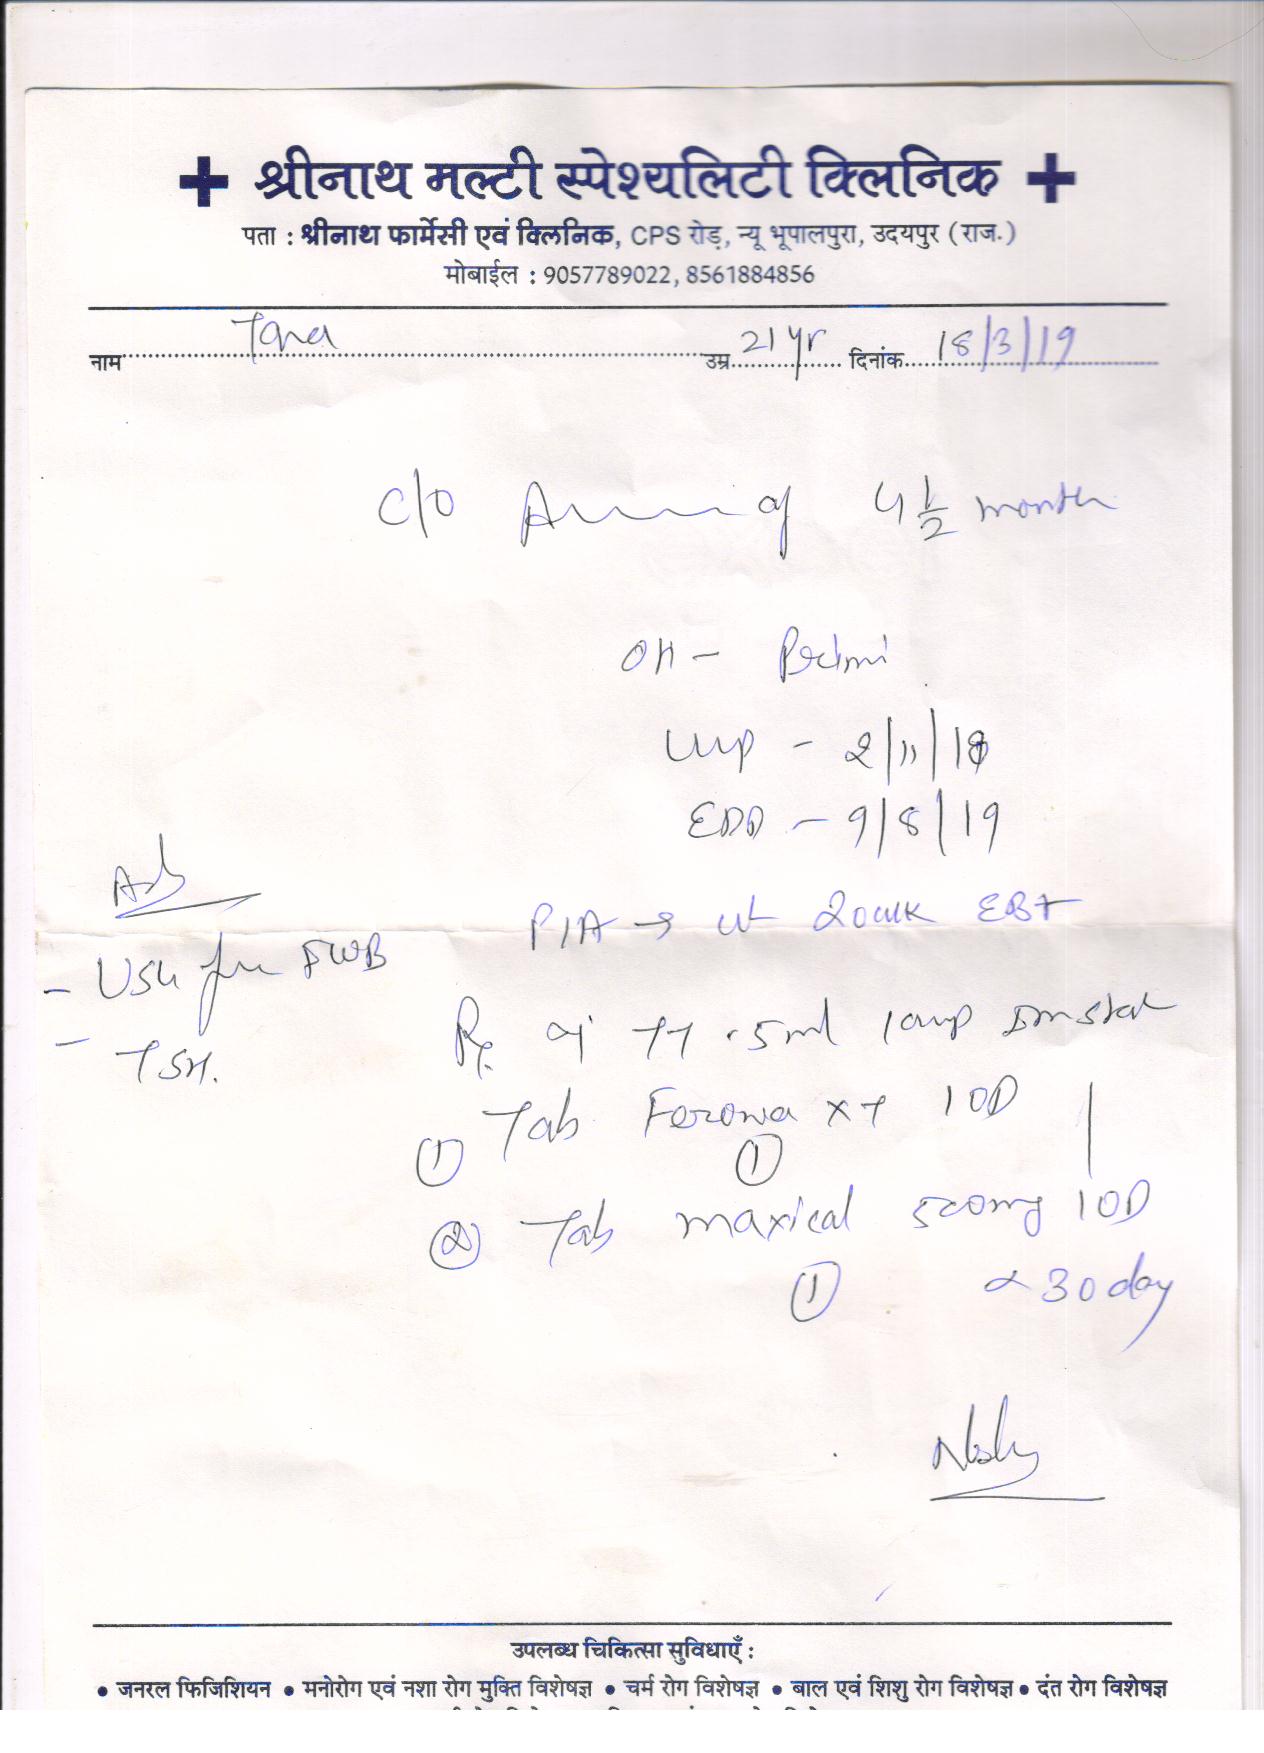 + श्रीनाथ मल्टी स्पेश्यलिटी क्लिनिक +
पता : श्रीनाथ फार्मेसी एवं क्लिनिक, CPS रोड़, न्यू भूपालपुरा, उदयपुर (राज.)
मोबाईल : 9057789022, 8561884856
नाम Tara उम्र 21 yr दिनांक 18/3/19
C/O of 4 1/2 month
OH - Primi
LMP - 2/11/18
EDD - 9/8/19
P/A → ut 20 wk
- USG for FWB
- TSH.
Rx TT .5ml 1 amp stat
① Tab XT 1 OD
①
② Tab maxical 500mg 1 OD
① × 30 day
उपलब्ध चिकित्सा सुविधाएँ :
• जनरल फिजिशियन • मनोरोग एवं नशा रोग मुक्ति विशेषज्ञ • चर्म रोग विशेषज्ञ • बाल एवं शिशु रोग विशेषज्ञ • दंत रोग विशेषज्ञ